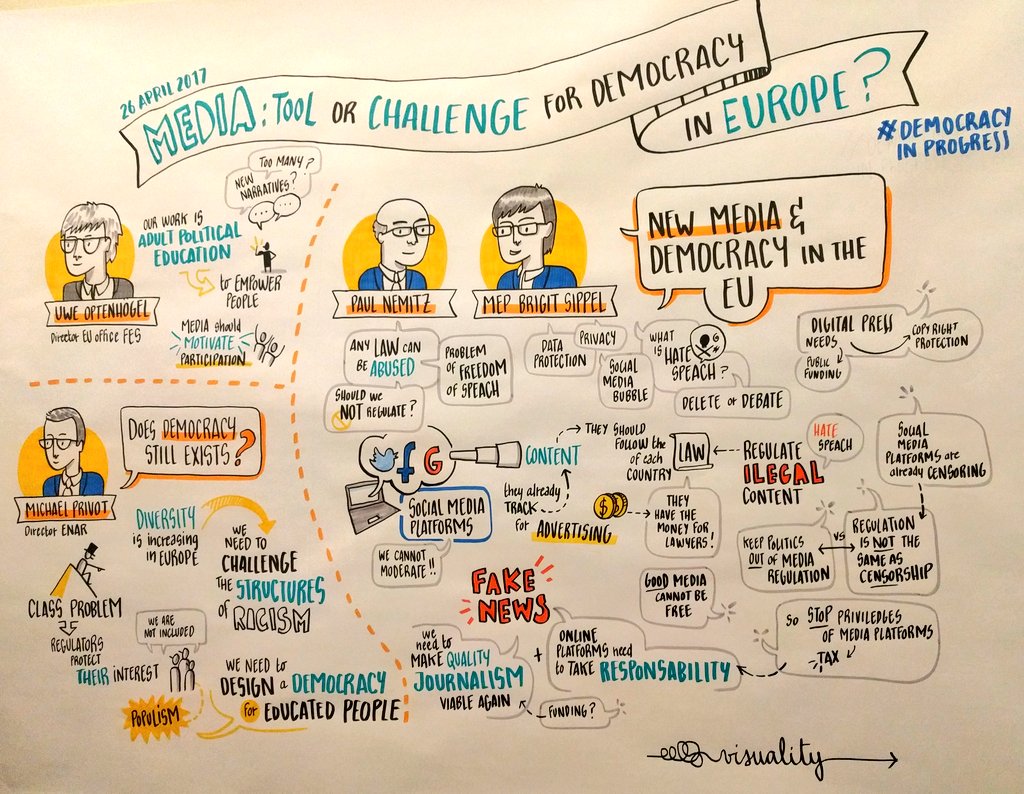 26 APRIL 2017
MEDIA: TOOL OR CHALLENGE FOR DEMOCRACY
IN EUROPE?
#DEMOCRACY
IN PROGRESS
TOO MANY?
NEW
NARRATIVES?
OUR WORK IS
ADULT POLITICAL
EDUCATION
to EMPOWER
PEOPLE
UWE OPTENHOGEL
Director EU office FES
MEDIA should
MOTIVATE
PARTICIPATION
DOES DEMOCRACY
STILL EXISTS?
MICHAEL PRIVOT
Director ENAR
DIVERSITY
is INCREASING
IN EUROPE
WE
NEED TO
CHALLENGE
the STRUCTURES
of RACISM
CLASS PROBLEM
REGULATORS
PROTECT
THEIR INTEREST
WE ARE
NOT INCLUDED
POPULISM
WE NEED to
DESIGN a DEMOCRACY
for EDUCATED PEOPLE
PAUL NEMITZ
MEP BRIGIT SIPPEL
NEW MEDIA &
DEMOCRACY IN THE
EU
ANY LAW CAN
BE ABUSED
PROBLEM
of FREEDOM
of SPEACH
SHOULD WE
NOT REGULATE?
DATA
PROTECTION
PRIVACY
SOCIAL
MEDIA
BUBBLE
WHAT
IS HATE
SPEACH?
DELETE or DEBATE
DIGITAL PRESS
NEEDS
PUBLIC
FUNDING
COPYRIGHT
PROTECTION
f G
SOCIAL MEDIA
PLATFORMS
WE CANNOT
MODERATE!!
CONTENT
they already
TRACK
for ADVERTISING
THEY SHOULD
FOLLOW the
of EACH
COUNTRY
LAW
THEY
HAVE THE
MONEY FOR
LAWYERS!
REGULATE
ILEGAL
CONTENT
HATE
SPEACH
SOCIAL
MEDIA
PLATFORMS are
already CENSORING
KEEP POLITICS
OUT of MEDIA
REGULATION
VS
REGULATION
is NOT the
SAME AS
CENSORSHIP
GOOD MEDIA
CANNOT BE
FREE
SO STOP PRIVILEDGES
OF MEDIA PLATFORMS
TAX
FAKE
NEWS
we
need to
MAKE QUALITY
JOURNALISM
VIABLE AGAIN
+
ONLINE
PLATFORMS need
to TAKE RESPONSABILITY
FUNDING?
visuality